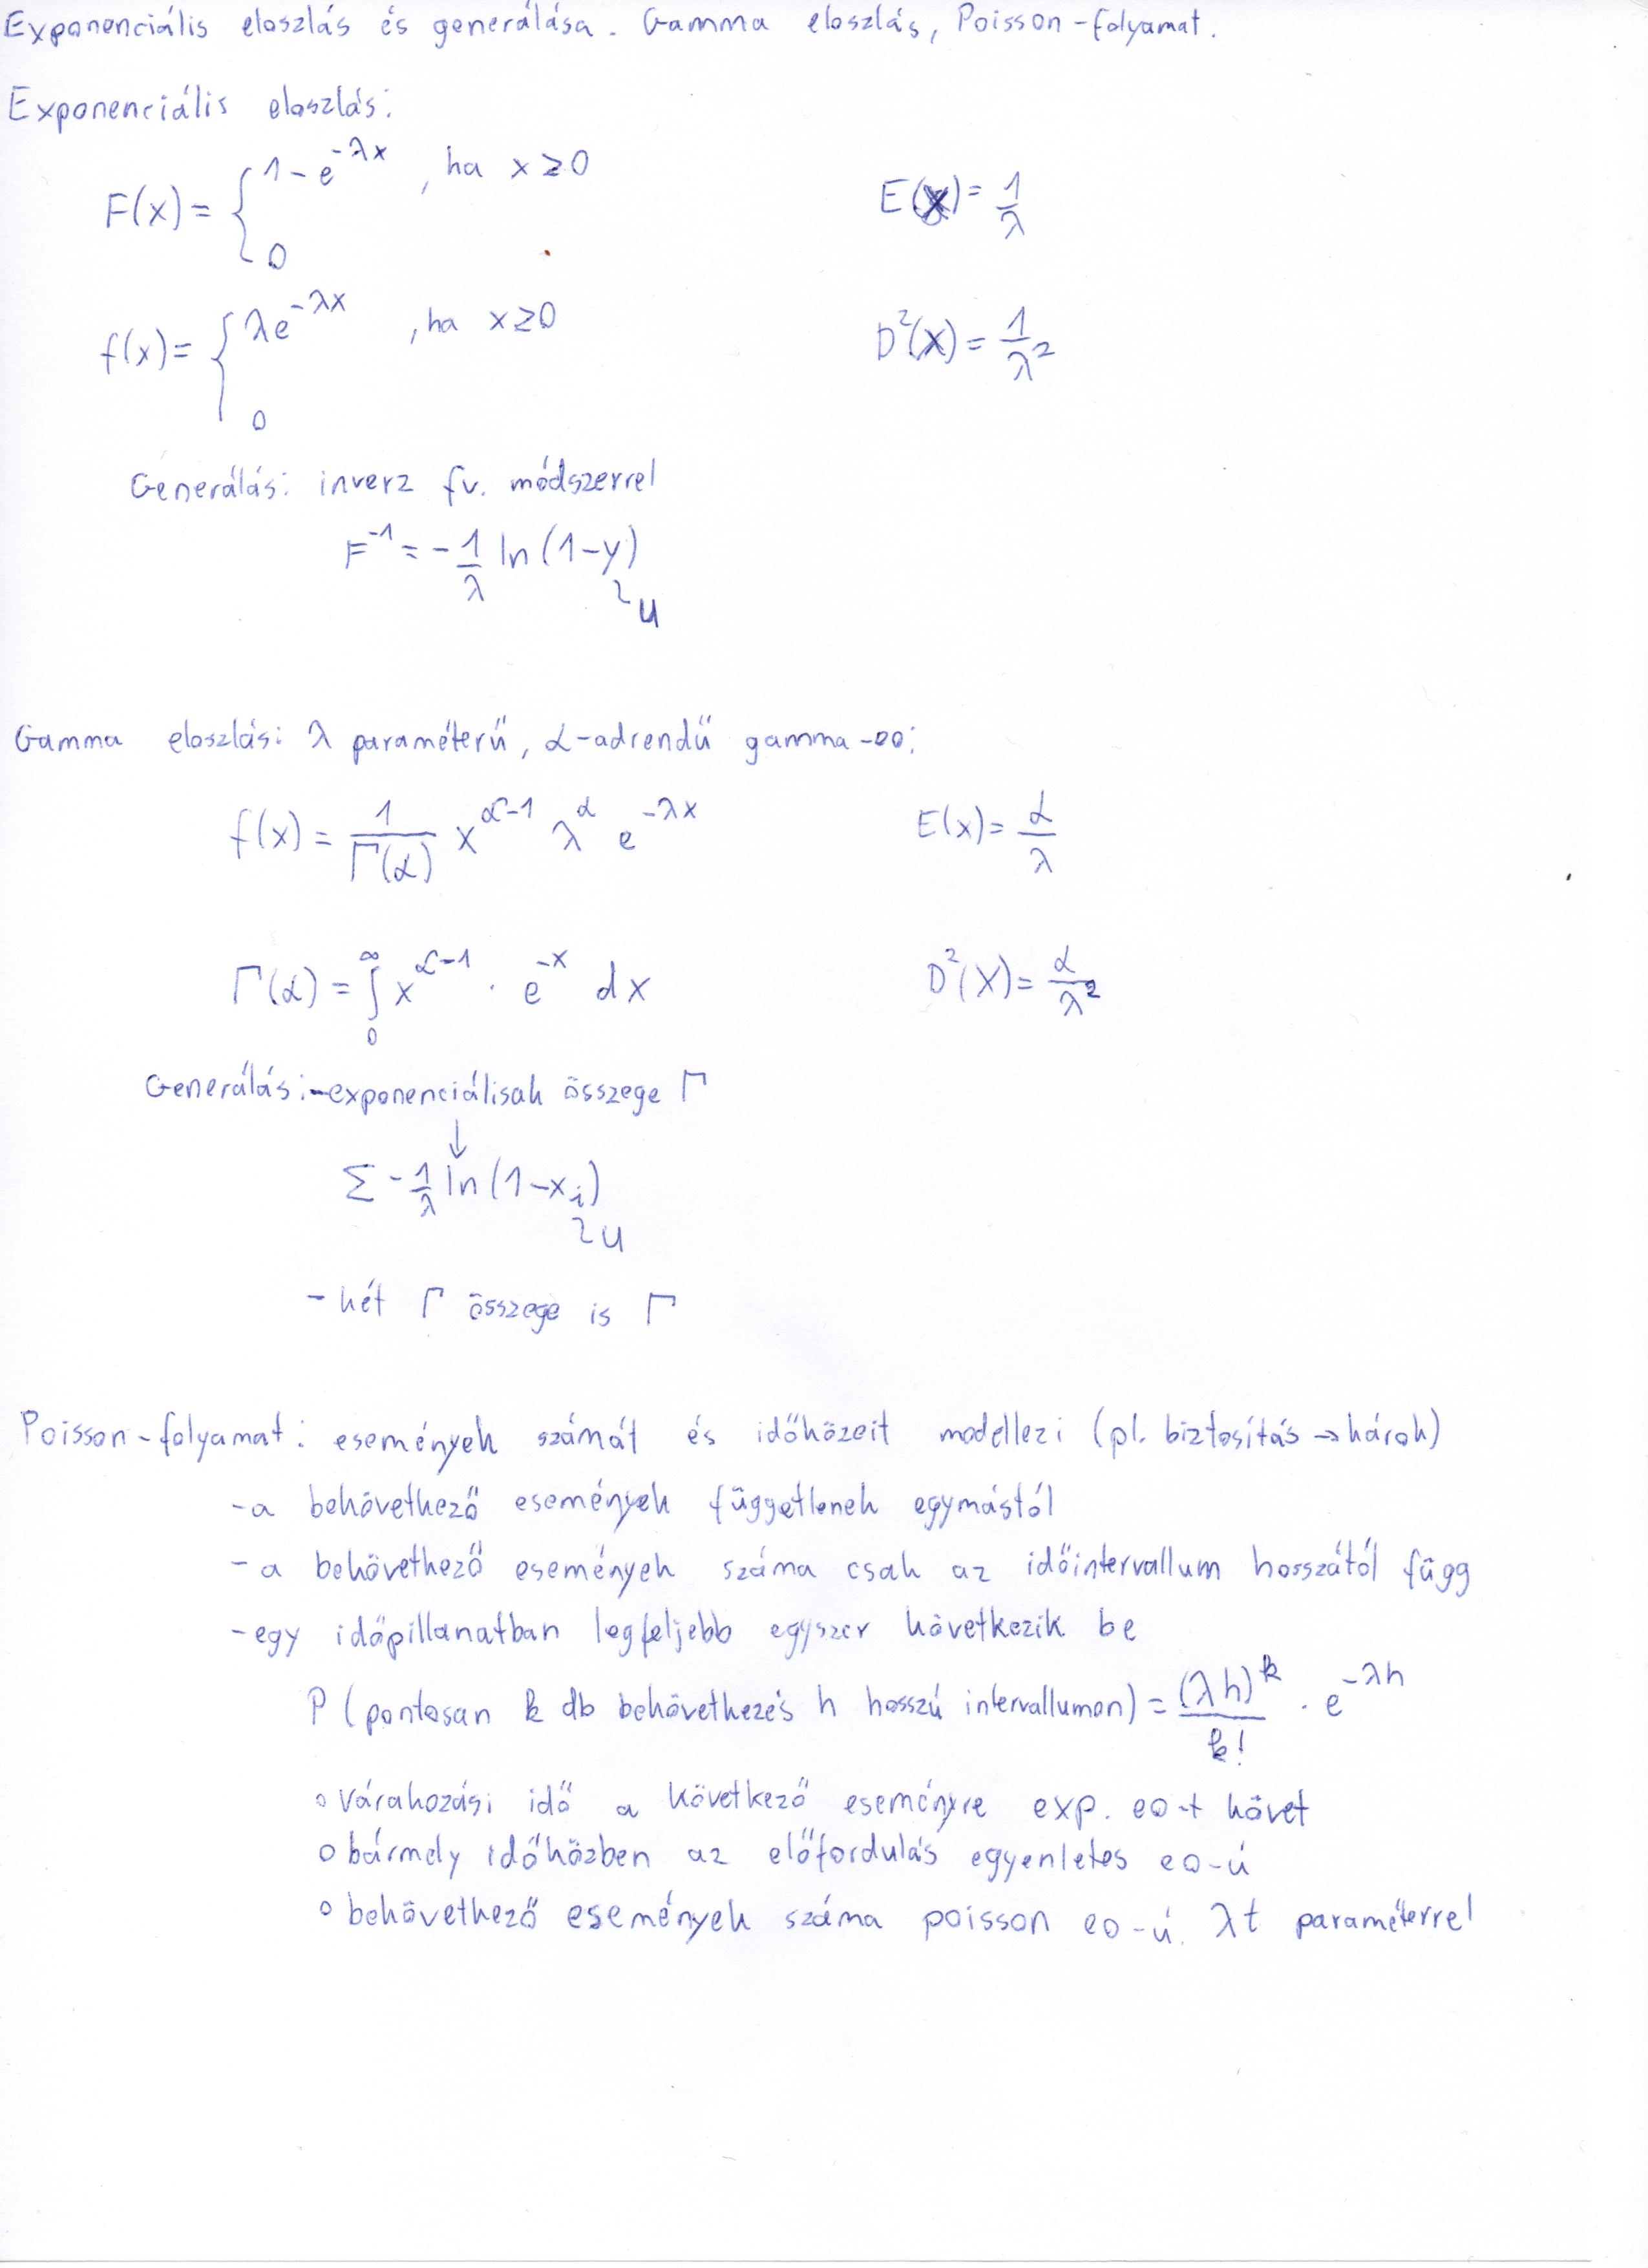 Exponenciális eloszlás és generálása. Gamma eloszlás, Poisson-folyamat.
Exponenciális eloszlás:
F(x) = { 1 - e^{-λx} , ha x ≥ 0
0
E(X) = 1/λ
f(x) = { λe^{-λx} , ha x ≥ 0
0
D²(X) = 1/λ²
Generálás: inverz fv. módszerrel
F^{-1} = - 1/λ ln (1-y)
~u
Gamma eloszlás: λ paraméterű, α-adrendű gamma-eo:
f(x) = 1/Γ(α) x^{α-1} λ^α e^{-λx}
E(x) = α/λ
Γ(α) = ∫₀^∞ x^{α-1} · e^{-x} dx
D²(X) = α/λ²
Generálás: - exponenciálisak összege Γ
↓
Σ - 1/λ ln (1-x_i)
~u
- két Γ összege is Γ
Poisson-folyamat: események számát és időközeit modellezi (pl. biztosítás → károk)
- a bekövetkező események függetlenek egymástól
- a bekövetkező események száma csak az időintervallum hosszától függ
- egy időpillanatban legfeljebb egyszer következik be
P (pontosan k db bekövetkezés h hosszú intervallumon) = (λh)^k / k! · e^{-λh}
o várakozási idő a következő eseményre exp. eo-t követ
o bármely időközben az előfordulás egyenletes eo-ú
o bekövetkező események száma poisson eo-ú. λt paraméterrel